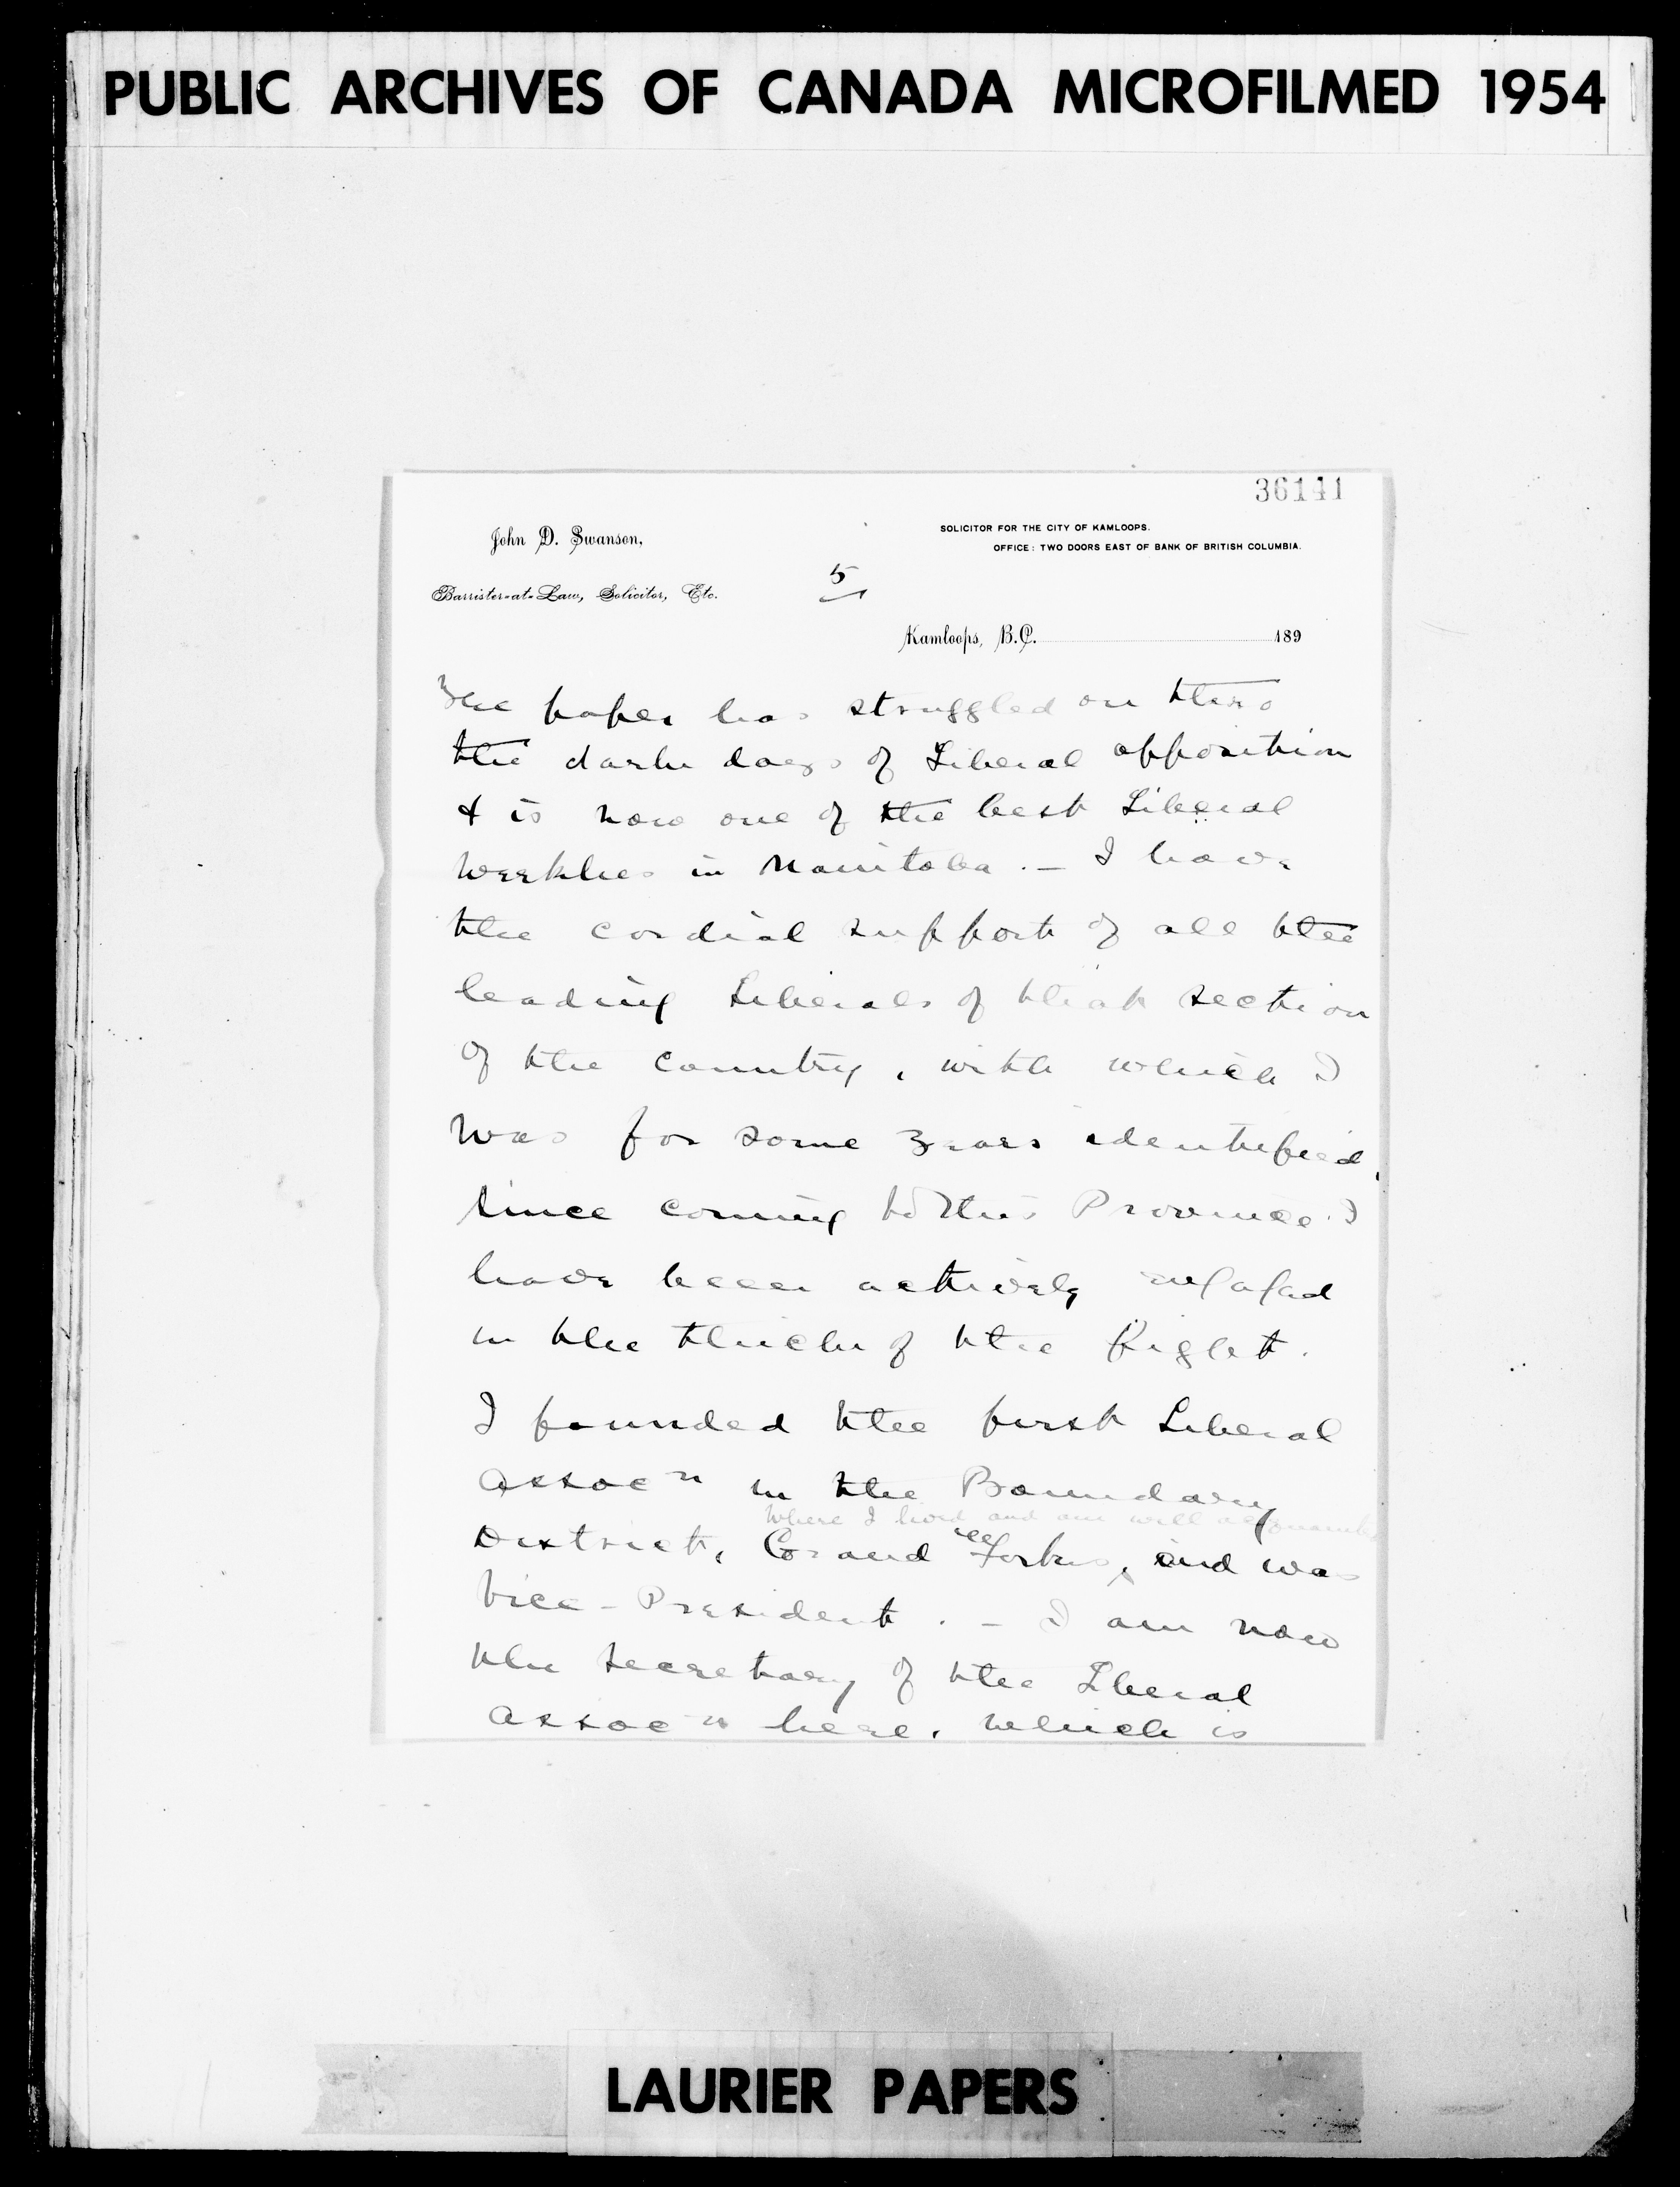 PUBLIC ARCHIVES OF CANADA MICROFILMED 1954
36141
John D. Swanson,
SOLICITOR FOR THE CITY OF KAMLOOPS.
OFFICE: TWO DOORS EAST OF BANK OF BRITISH COLUMBIA.
Barrister-at-Law, Solicitor, Etc.
5
Kamloops, B.C. 189
The paper has struggled on thro
the dark days of Liberal opposition
& is now one of the best Liberal
weeklies in Manitoba. — I have
the cordial support of all the
leading Liberals of that section
of the country, with which I
was for some years identified.
Since coming to this Province I
have been actively engaged
in the thick of the fight.
I founded the first Liberal
Assocn in the Boundary
where I lived and am well
District, Grand Forks, and was
Vice-President. — I am now
the Secretary of the Liberal
Assocn here, which is
LAURIER PAPERS